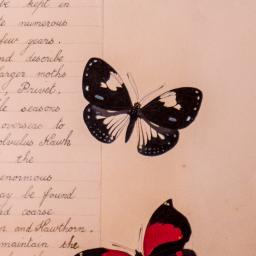 be kept in
te numerous
few years.
and describe
larger moths
, Privet.
le seasons
overseas to
olvulus Hawk
the
enormous
ay be found
ed coarse
and Hawthorn.
maintain the